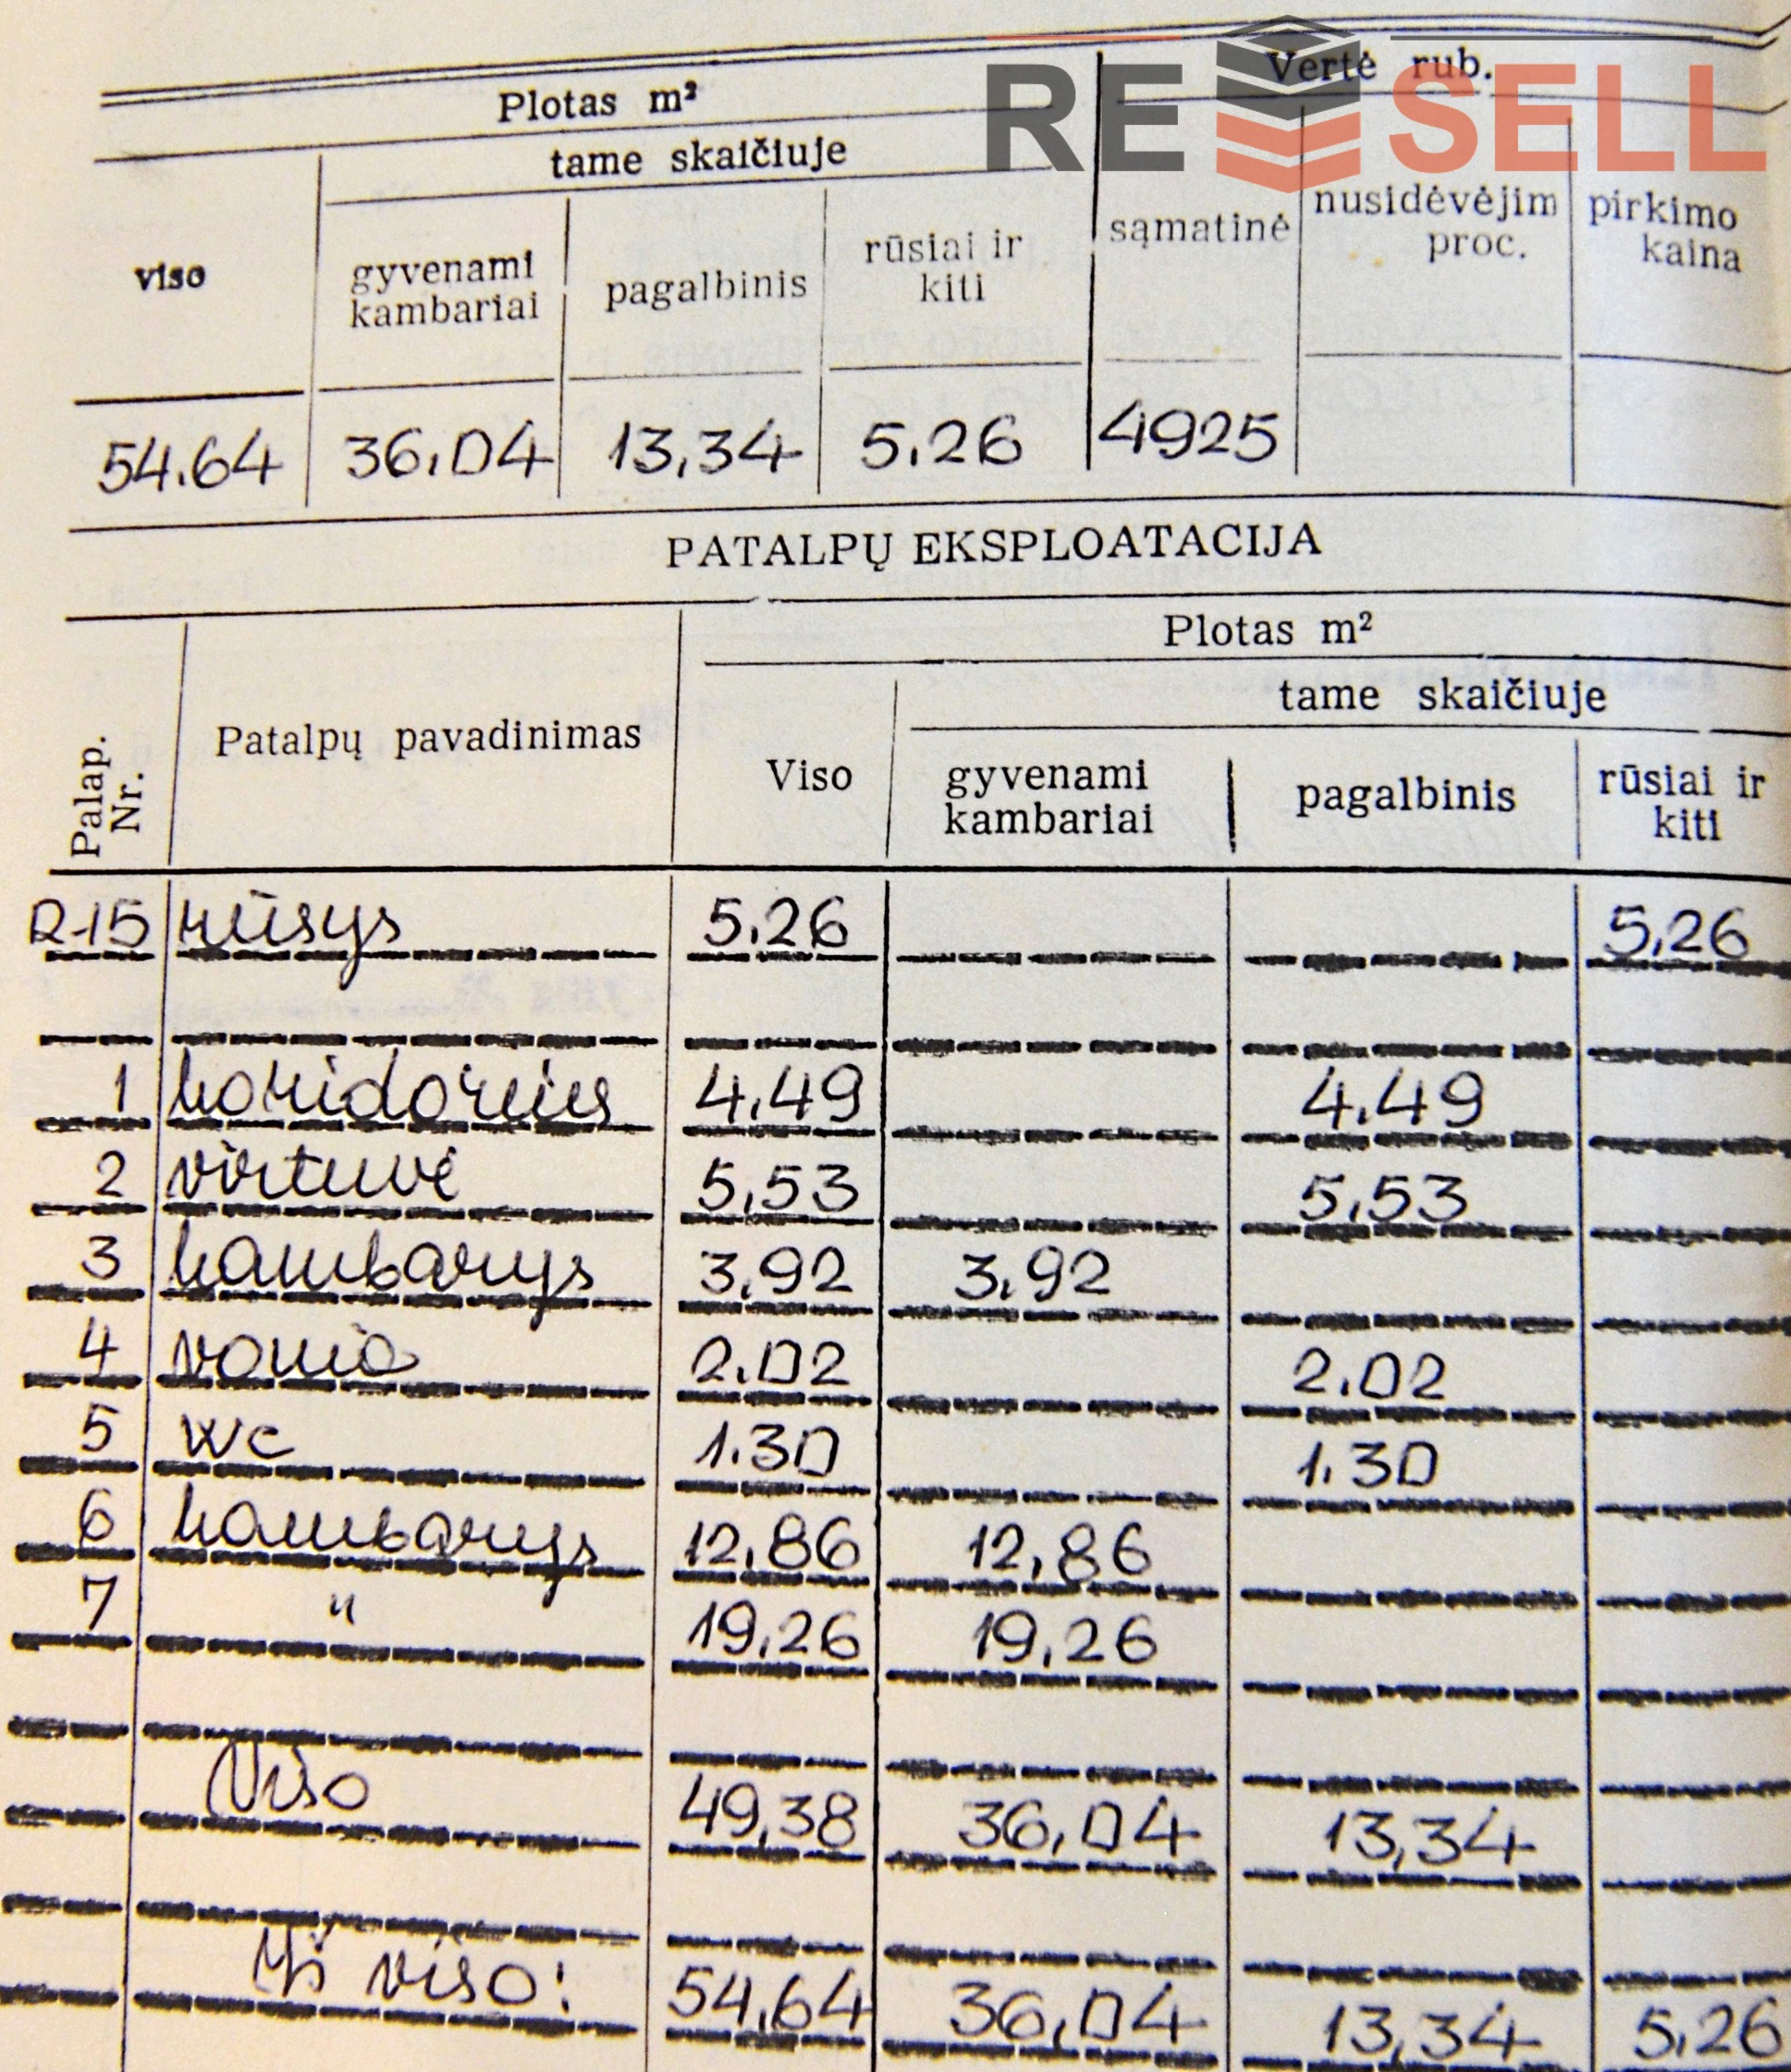 RE SELL
Plotas m² Vertė rub.
tame skaičiuje
viso gyvenami kambariai pagalbinis rūsiai ir kiti sąmatinė nusidėvėjim proc. pirkimo kaina
54.64 36,04 13,34 5.26 4925
PATALPŲ EKSPLOATACIJA
Plotas m²
tame skaičiuje
Palap. Nr. Patalpų pavadinimas Viso gyvenami kambariai pagalbinis rūsiai ir kiti
R-15 rūsys 5.26 5,26
1 koridorius 4.49 4.49
2 virtuvė 5,53 5,53
3 kambarys 3.92 3.92
4 vonia 2.02 2.02
5 wc 1.30 1.30
6 kambarys 12,86 12,86
7 " 19,26 19,26
Viso 49,38 36,04 13,34
Iš viso: 54,64 36,04 13,34 5.26